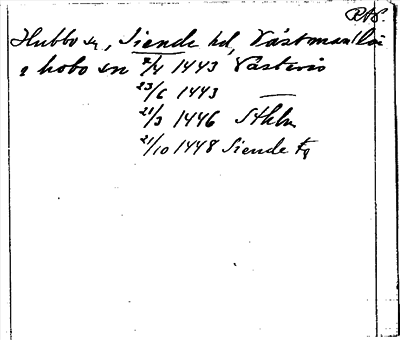 RAp.
Hubbo sn, Siende hd, Västmanl. län
i hobo sn 2/4 1443 Västerås
23/6 1443 —
21/3 1446 Sthlm
21/10 1448 Siende tg